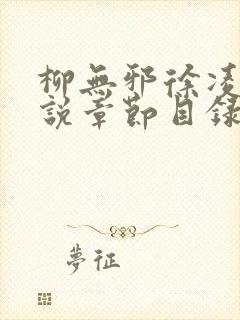 柳無邪徐凌
說章節目錄
夢征